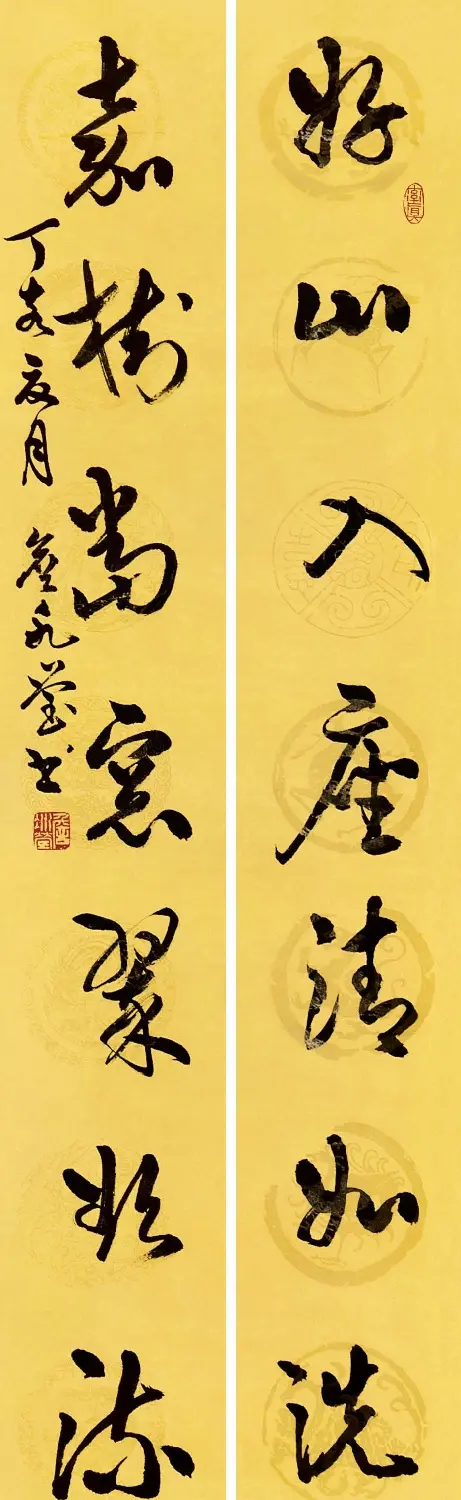 好山入座清如洗
嘉树当窗翠欲流
丁亥夏月